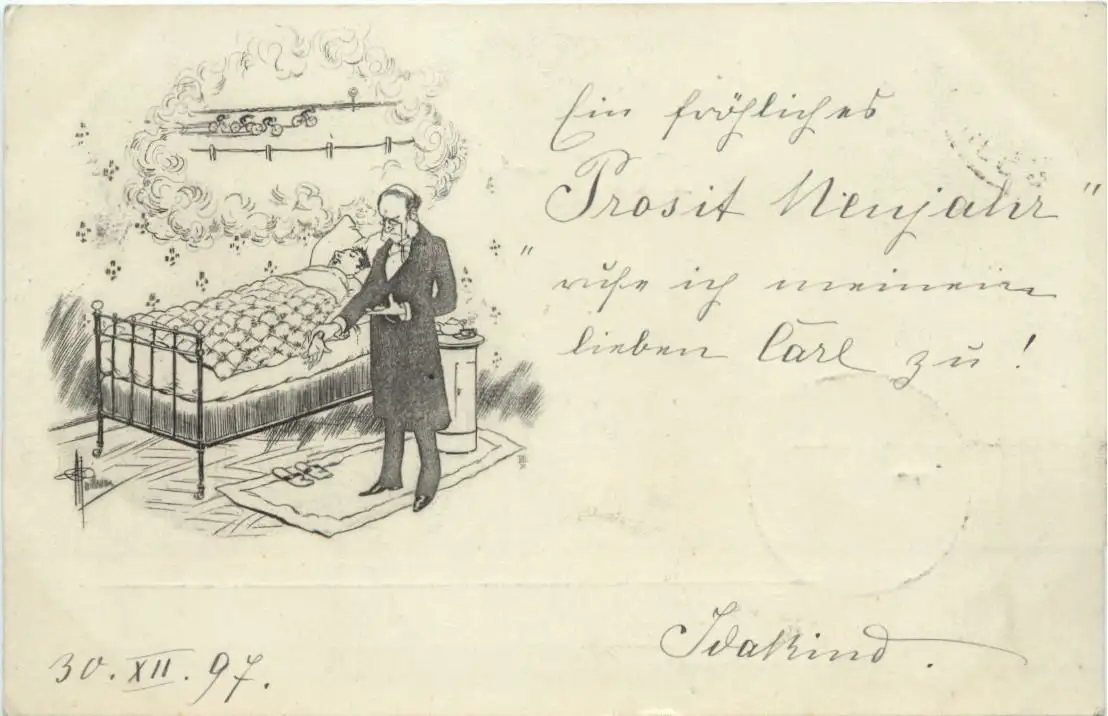 Ein fröhliches
"Prosit Neujahr"
rufe ich meinem
lieben Carl zu!
IdaKind.
30.XII.97.